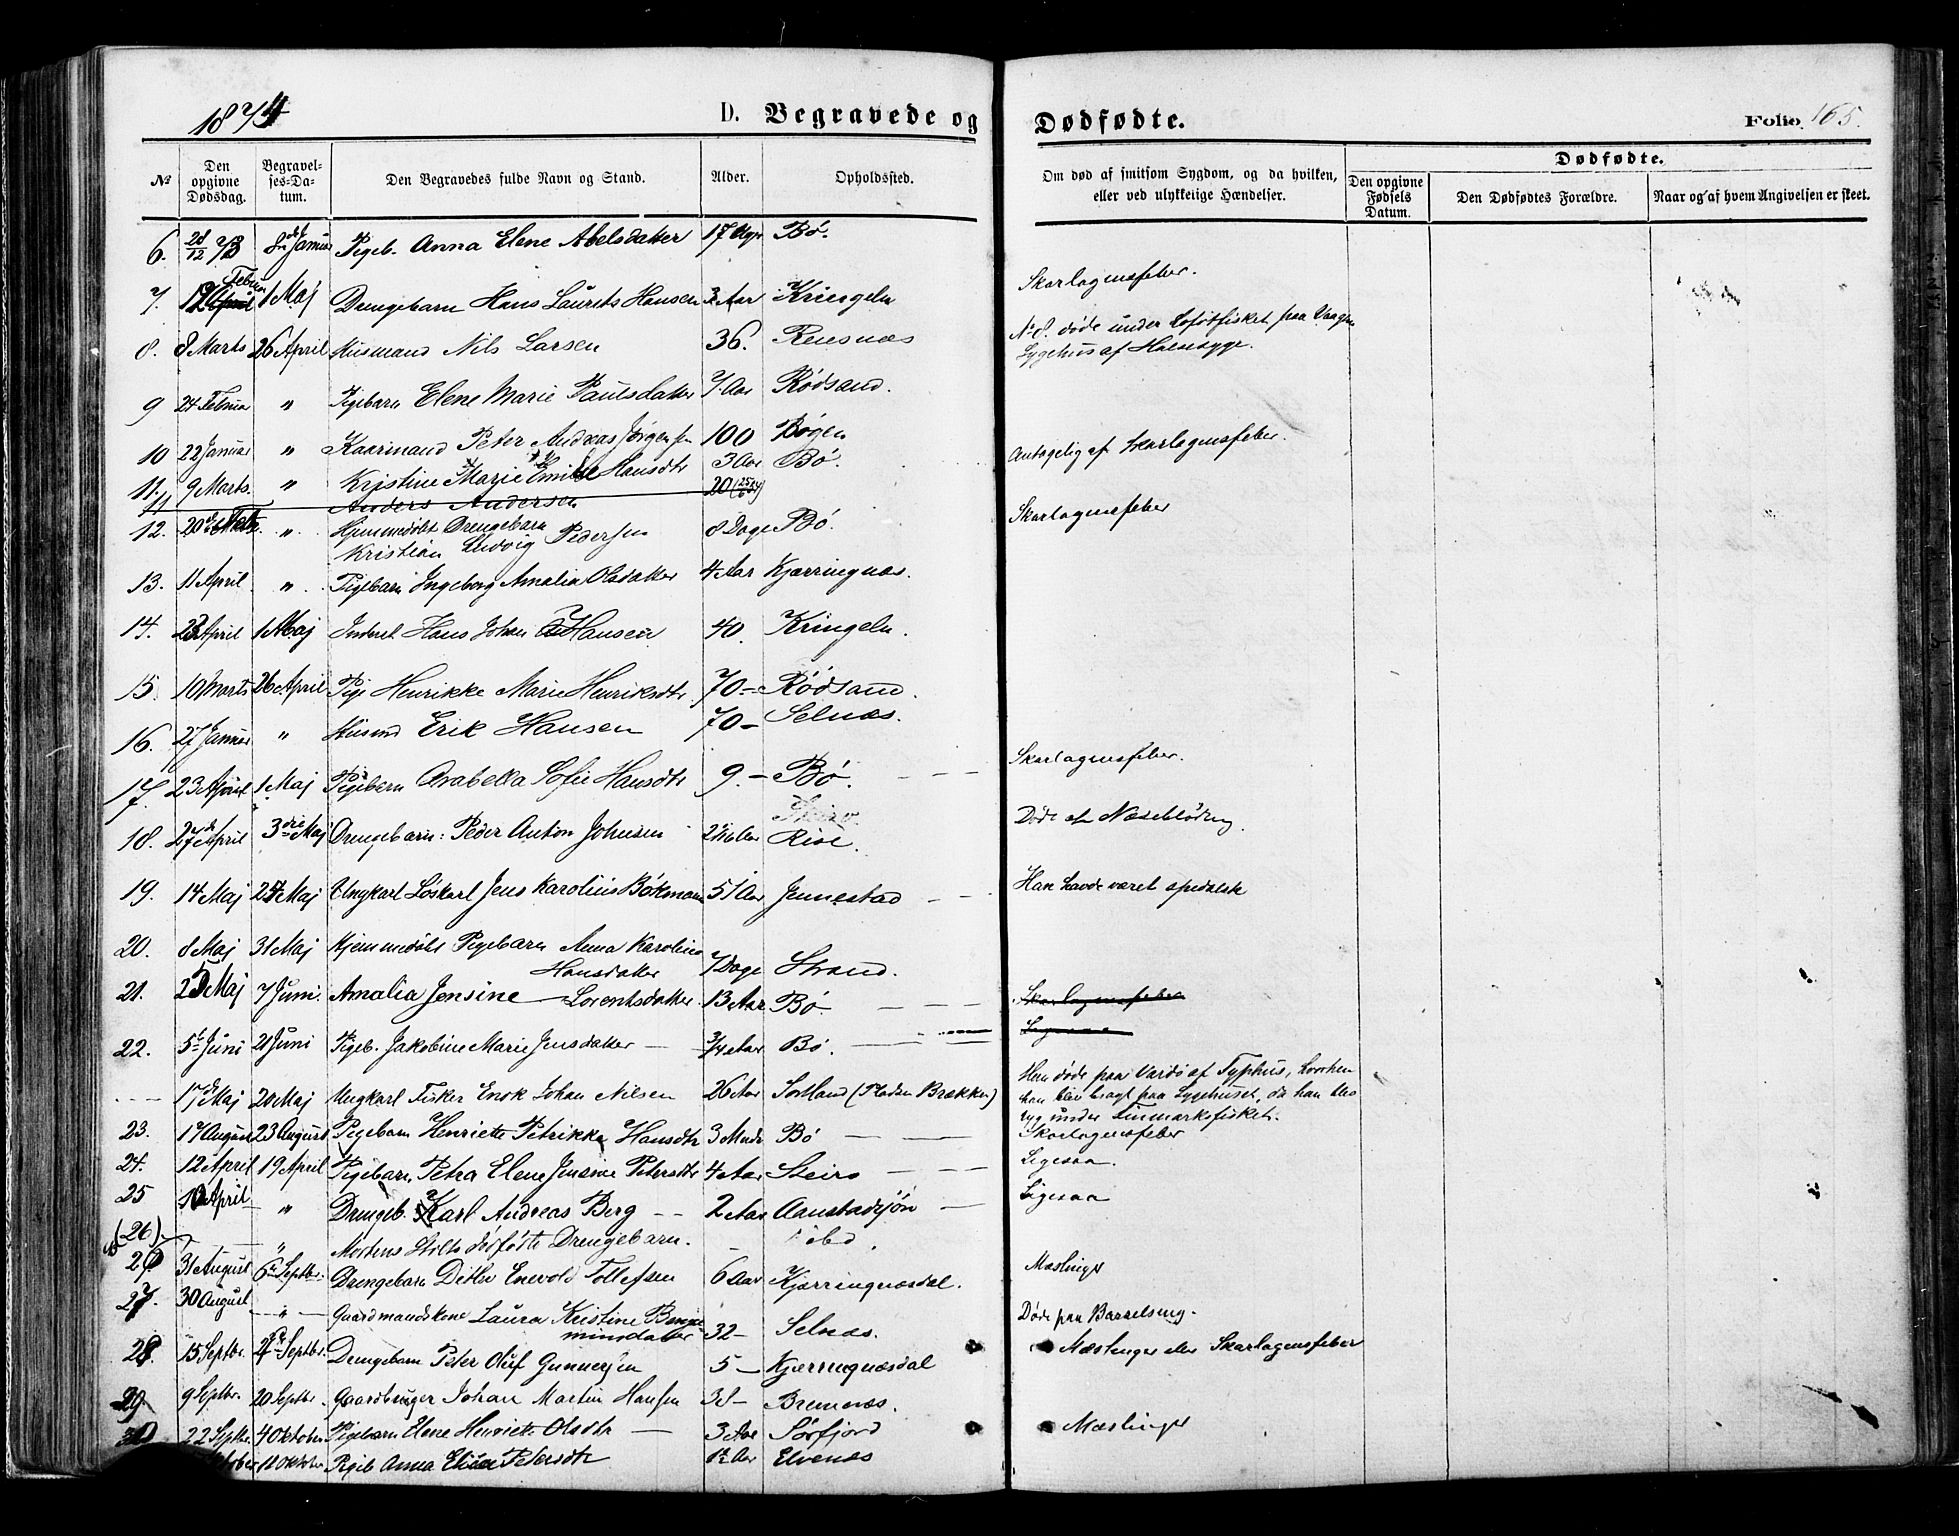 1874
D. Begravede og Dødfødte.
Folio 165.
№
Den opgivne Dødsdag.
Begravelses-Datum.
Den Begravedes fulde Navn og Stand.
Alder.
Opholdssted.
Om død af smitsom Sygdom, og da hvilken, eller ved ulykkelige Hændelser.
Dødfødte.
Den opgivne Fødsels Datum.
Den Dødfødtes Forældre.
Naar og af hvem Angivelsen er skeet.
6. 28/12 73 8de Januar Pigeb. Anna Elene Abelsdatter 17 Bø.
7. 19 Februar 1 Maj Drengebarn Hans Laurits Hansen 3 Aar Kringeln Skarlagensfeber.
8. 8 Marts 26 April Husmand Nils Larsen 36. Rensnæs No 8. døde under Lofotfisket paa Vaagen
Sygehus af Halssyge.
9 24 Februar " Pigebarn Elene Marie Paulsdatter 7 Aar Rødsand.
10 22 Januar " Kaarmand Peter Andreas Jørgensen 100 Bogen
11. 9 Marts. " Kristine Marie Emilie Hansdtr 3 Aar Bø. Antagelig af Skarlagensfeber.
11 Anders Andersen 20
12. 20de " Hjemmedøbt Drengebarn
Kristian Ludvig Pedersen 8 Dage Bø. Skarlagensfeber
13. 11 April " Pigebarn Ingeborg Amalia Olsdatter 4 Aar Kjærringnæs.
14. 23 April 1 Maj Inderst Hans Johan Hansen 40. Kringeln.
15. 10 Marts 26 April Pige Henrikke Marie Henriksdtr 70 - Rødsand.
16. 27 Januar " Husmd Erik Hansen 70 - Selnæs.
17. 23 April 1 Maj Pigebarn Arabella Sofie Hansdtr 9 - Bø. Skarlagensfeber.
18. 27de April 3die Maj Drengebarn: Peder Anton Johnsen Rise. Døde af Næseblødning.
19. 14 Maj 25 Maj Ungkarl Løskarl Jens Karolius Bøkman 51 Aar Jennestad Han havde været spedalsk
20. 8 Maj 31 Maj Hjemmedøbt Pigebarn Anna Karolina
Hansdatter 7 Dage Strand.
21. 25 Maj 7 Juni. Amalia Jensine Lorentsdatter 13 Aar Bø. Skarlagensfeber
22. 5te Juni 21 Juni Pigeb. Jakobine Marie Jensdatter 3/4 Aar Bø. Ligesaa
17de Maj 20 Maj Ungkarl Fisker Enok Johan Nilsen 26 Aar Sortland (Pladsen Brækken) Han døde paa Vardø af Typhus, hvorhen
han blev bragt paa Sygehuset, da han blev
syg under Finmarksfisket.
23. 17 August 23 August Pigebarn Henriette Petrikka Hansdtr 3 Mndr Bø Skarlagensfeber
24. 12 April 19 April Pigebarn Petra Elene Jensine Petersdtr 4 Aar Steiro Ligesaa.
25 10 April " Drengeb. Karl Andreas Berg 2 Aar Aanstadsjøn Ligesaa
(26) " Mortens Holts dødfødte Drengebarn.
26 31 August 6te Septbr. Drengebarn Ditlev Enevold Tollefsen 6 Aar Kjærringnæsdal. Mæslinger
27. 30 August " Gaardmandskone Laura Kristine Benja-
minsdatter 32 - Selnæs. Døde paa Barselseng.
28 15 Septbr. Septbr. Drengebarn Peter Oluf Gunnersen 5 - Kjærringnæsdal Mæslinger eller Skarlagensfeber
29. 9 Septbr. 20 Septbr. Gaardbruger Johan Martin Hansen 38 - Bremnæs.
30 22 Septbr. 4 Oktober Pigebarn Elene Henriette Olsdtr 3 Aar Sørfjord Mæslinger
Oktober Pigeb Anna Petersdtr Aar Elvenæs